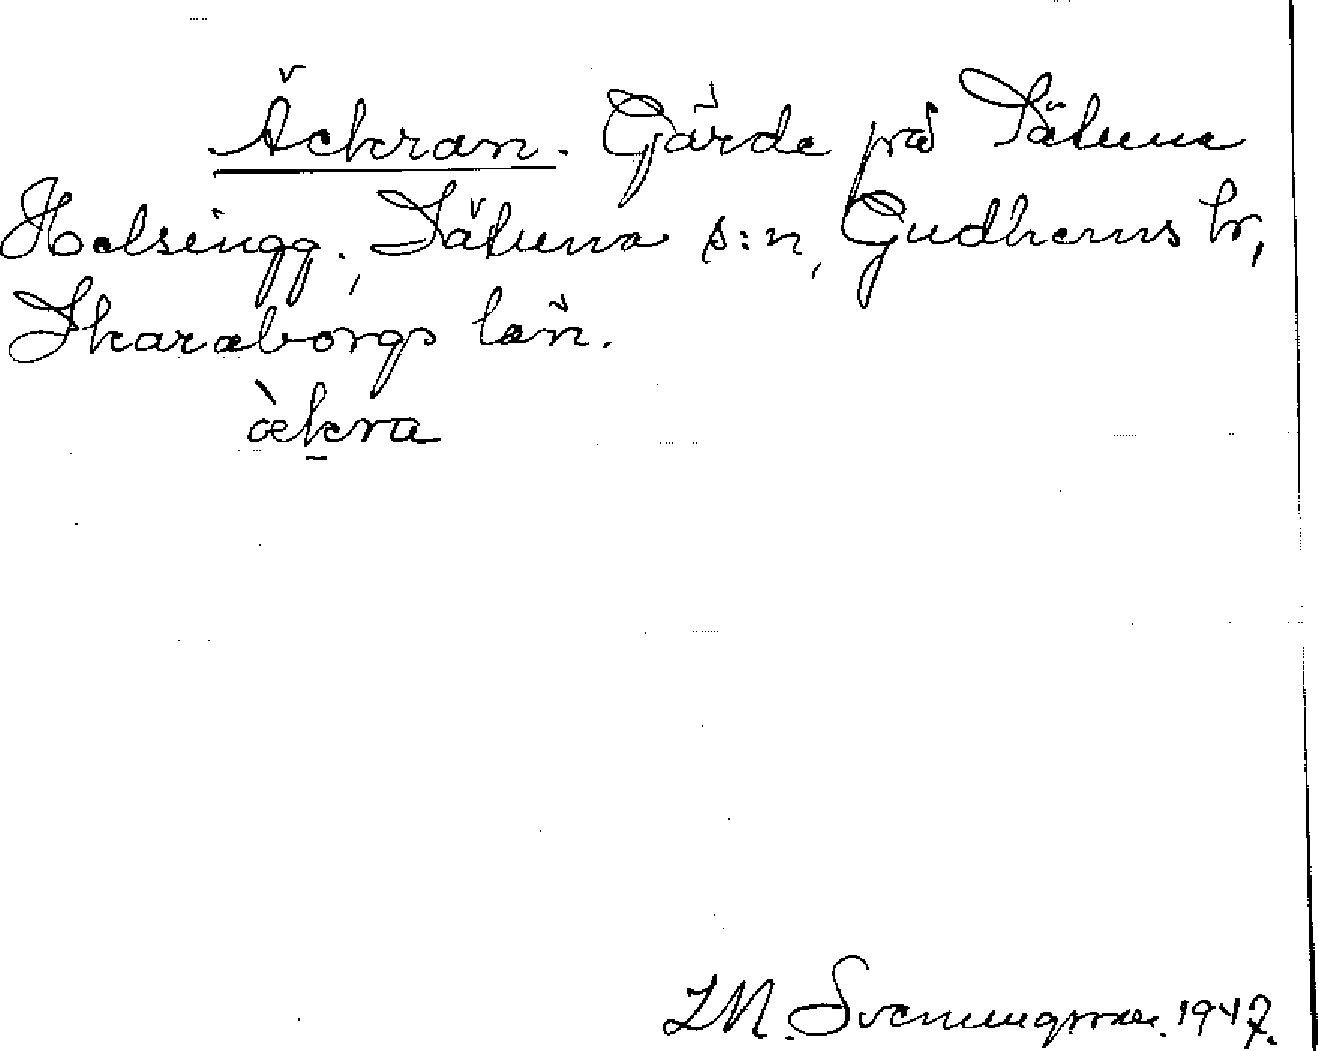 Äckran. Gärde på Sätuna
Helsingg., Sätuna s:n, Gudhems hr,
Skaraborgs län.
ὰkra
I.M. Svenungsson. 1947.